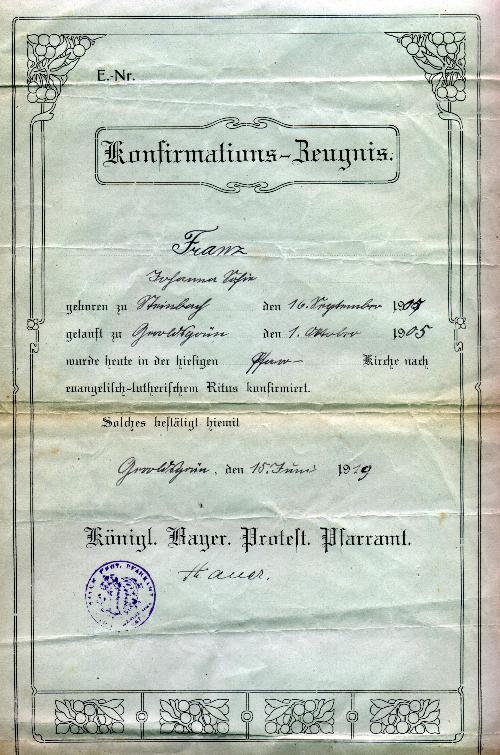 E.-Nr.
Konfirmations-Zeugnis.
Franz
Johanna Sofie
geboren zu Steinbach den 16. September 1905
getauft zu Geroldsgrün den 1. Oktober 1905
wurde heute in der hiesigen Pfarr- Kirche nach
evangelisch-lutherischem Ritus konfirmiert.
Solches bestätigt hiemit
Geroldsgrün, den 15. Juni 1919
Königl. Bayer. Protest. Pfarramt.